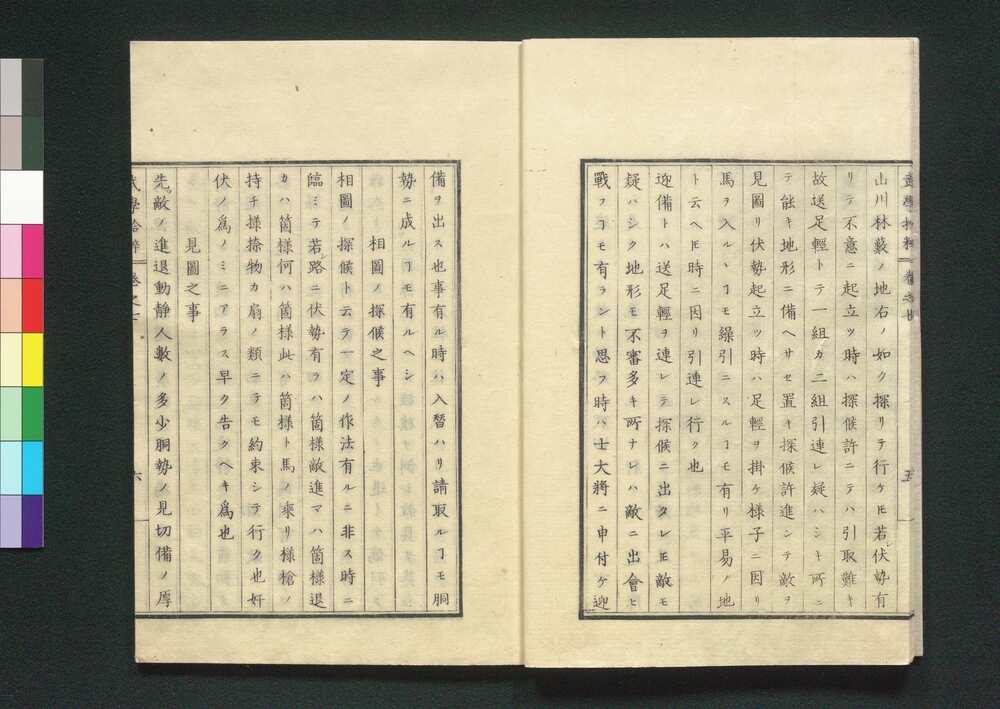 山川林藪ノ地右ノ如ク探リテ行ケ𪜈若シ伏勢有
リテ不意ニ起立ツ時ハ探候許ニテハ引取難キ
故送足輕トテ一組カ二組引連レ疑ハシキ所ニ
テ能キ地形ニ備ヘサセ置キ探候許進ンテ敵ヲ
見圖リ伏勢起立ツ時ハ足輕ヲ掛ケ様子ニ因リ
馬ヲ入ルヽヿモ繰引ニスルヿモ有リ平易ノ地
ト云ヘ𪜈時ニ因リ引連レ行ク也
迎備トハ送足輕ヲ連レテ探候ニ出タレ𪜈敵モ
疑ハシク地形モ不審多キ所ナレハ敵ニ出會ヒ
戰フヿモ有ラント思フ時ハ士大將ニ申付ケ迎
備ヲ出ス也事有ル時ハ入替ハリ請取ルヿモ胴
勢ニ成ルヿモ有ルヘシ
相圖ノ探候之事
相圖ノ探候ト云テ一定ノ作法有ルニ非ス時ニ
臨ミテ若シ路ニ伏勢有ラハ箇様敵進マハ箇様退
カハ箇様何ハ箇様此ハ箇様ト馬ノ乘リ様槍ノ
持チ様捺物カ扇ノ類ニテモ約束シテ行ク也奸
伏ノ爲ノミニアラス早ク告クヘキ爲也
見圖之事
先ツ敵ノ進退動靜人數ノ多少胴勢ノ見切備ノ厚
六